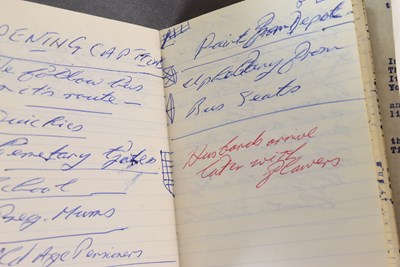 OPENING CAPTION
We follow bus
on its route —
Quickies
Cemetery Gates
School
Preg. Mums
Old Age Pensioners
Paint from Depot
Upholstery from
Bus Seats
Husbands arrive
later with
flowers